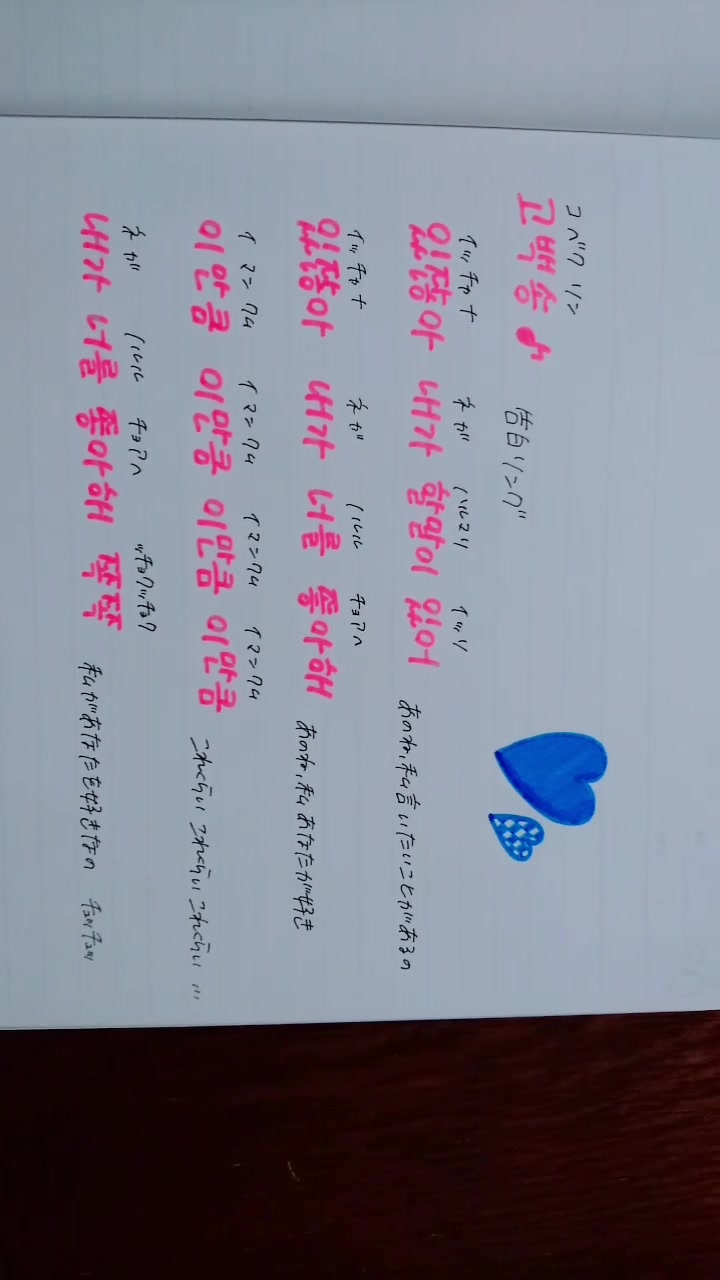 コベク ソン
고백송♪ 告白ソング
イッチャナ ネガ ハルマリ イッソ
있잖아 내가 할말이 있어 あのね、私言いたいことがあるの
イッチャナ ネガ ノルル チョアヘ
있잖아 내가 너를 좋아해 あのね、私あなたが好き
イマンクム イマンクム イマンクム イマンクム
이만큼 이만큼 이만큼 이만큼 これくらい これくらい これくらい …
ネガ ノルル チョアヘ ッチョクッチョク
내가 너를 좋아해 쪽쪽 私があなたを好きなの チュッチュッ